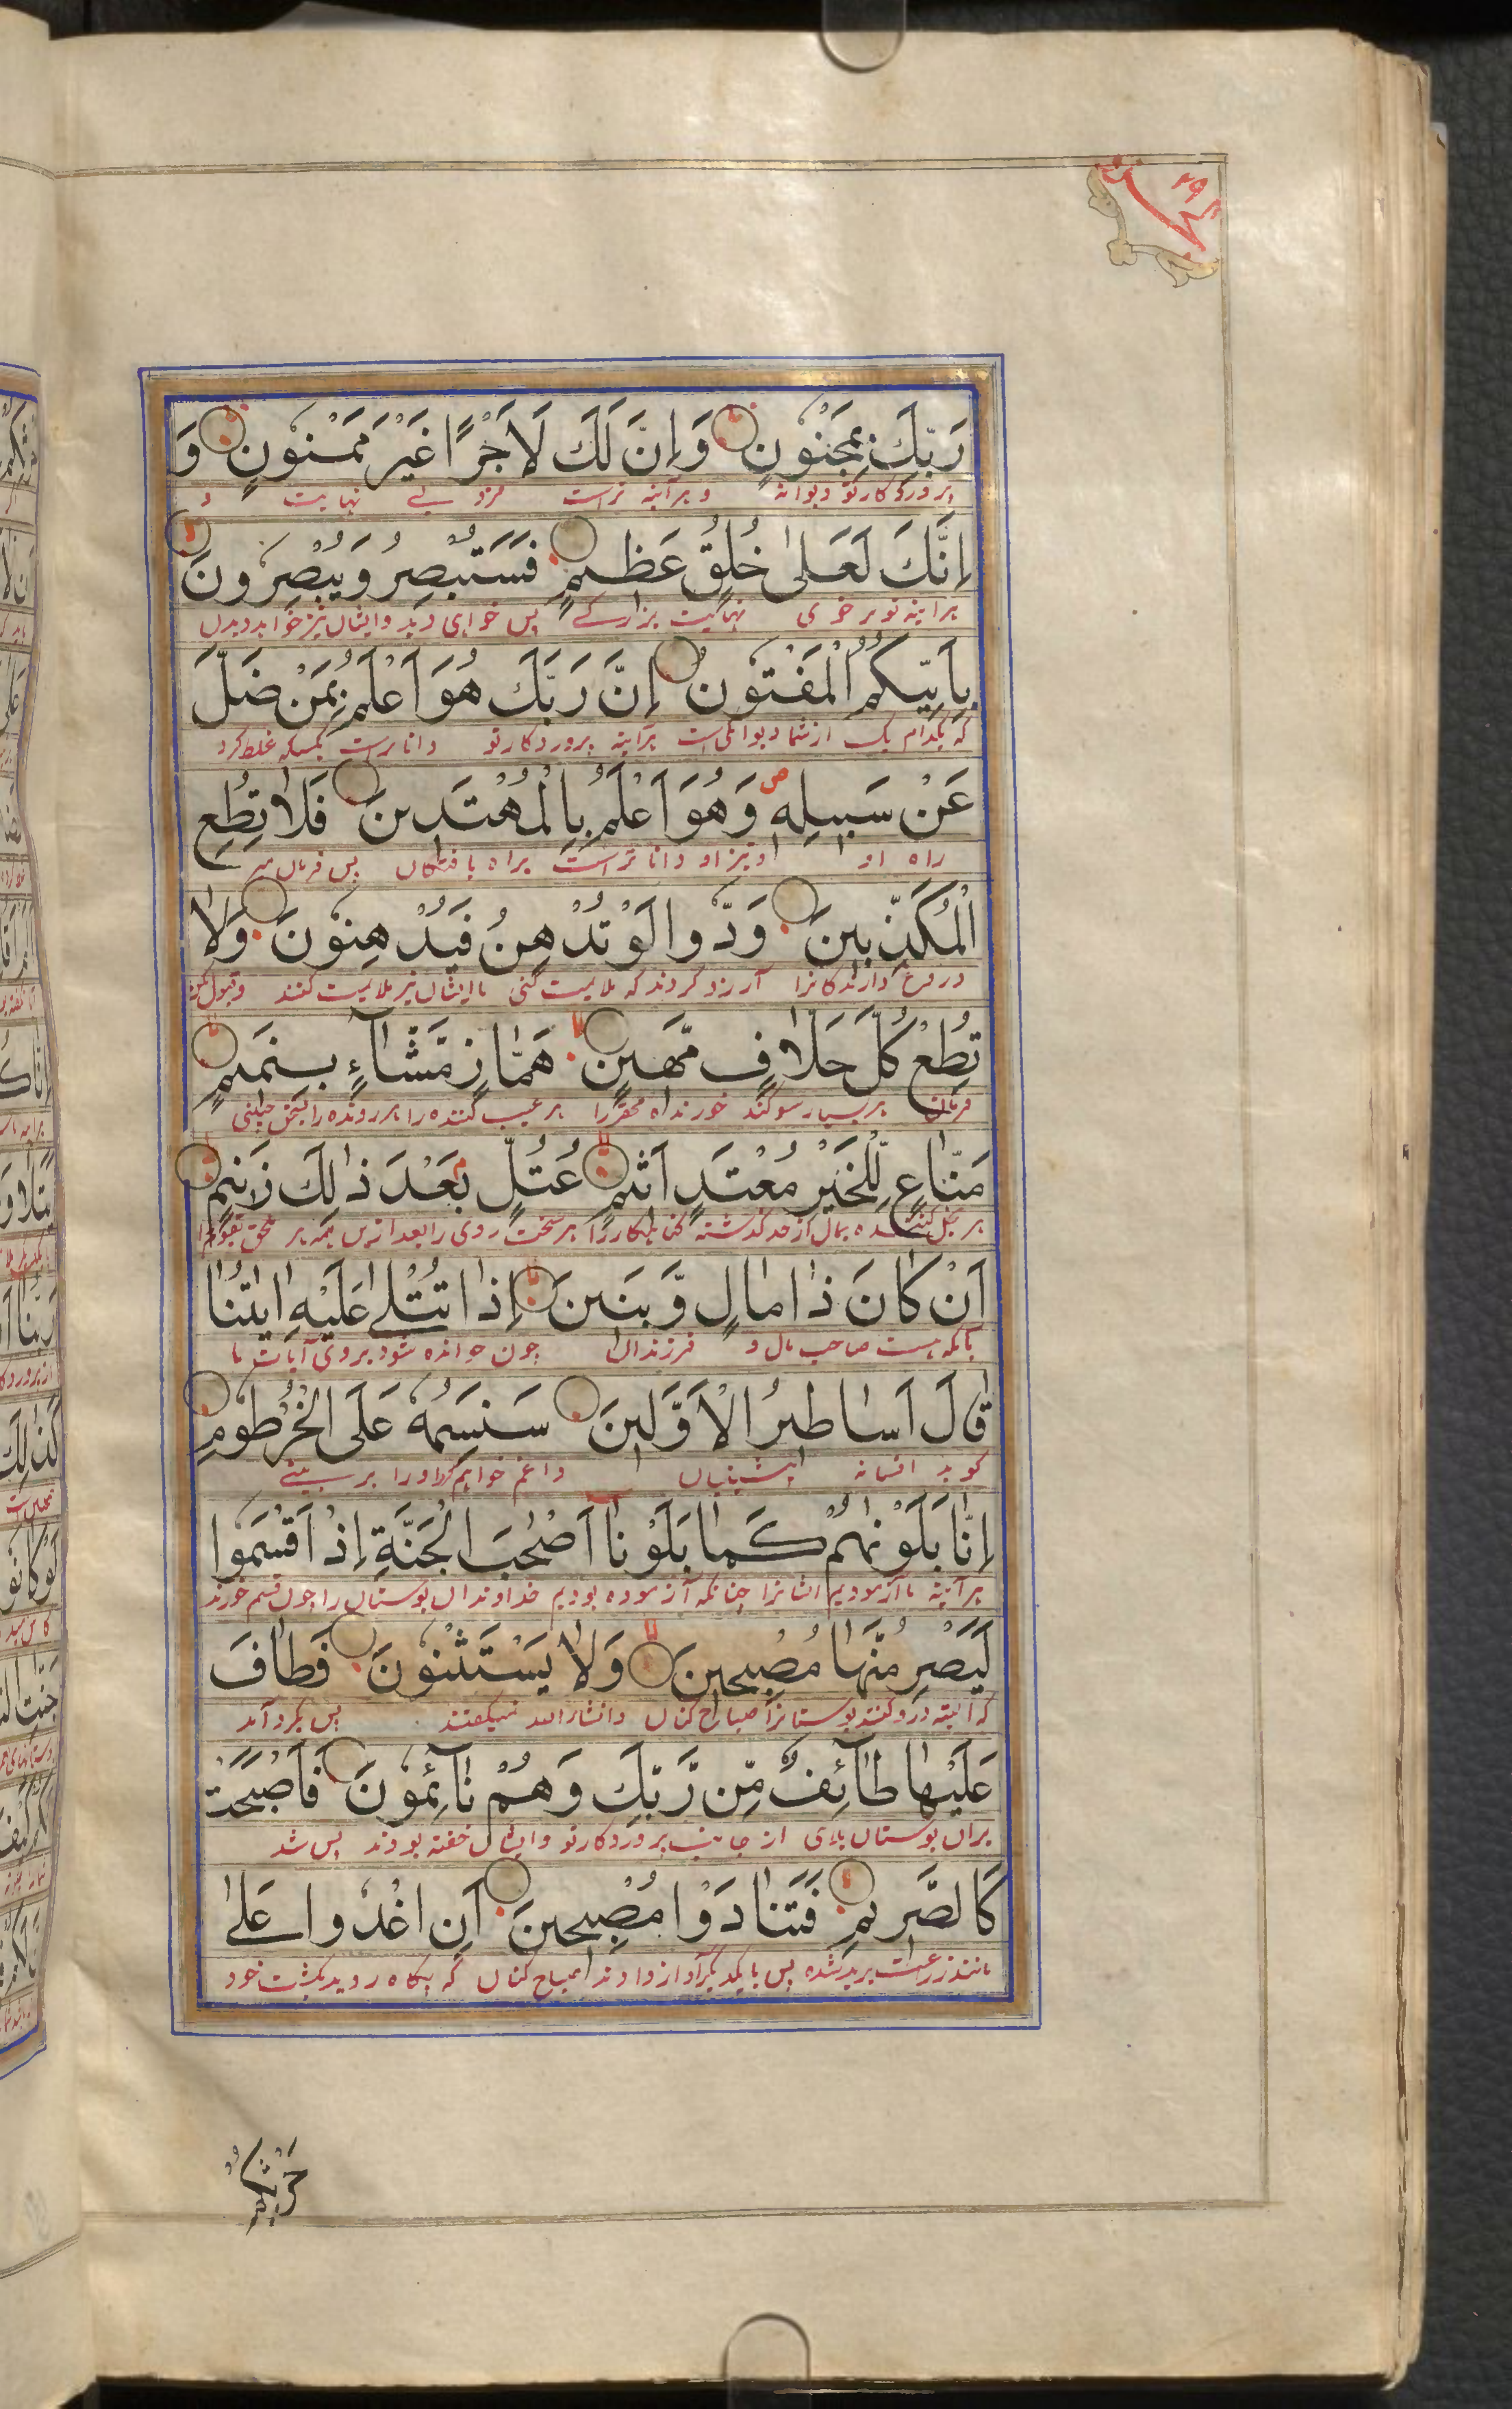 ۲۹
رَبِّكَ بِمَجْنُونٍ وَاِنَّ لَكَ لَاَجْرًا غَيْرَ مَمْنُونٍ وَ
پروردگار تو دیوانه و هر آینه تراست مزد بی نهایت و
اِنَّكَ لَعَلٰى خُلُقٍ عَظِيْمٍ فَسَتُبْصِرُ وَيُبْصِرُونَ
هر آینه تو بر خوی پس خواهی دید و ایشان نیز خواهد دیدن
بِاَيِّكُمُ الْمَفْتُونُ اِنَّ رَبَّكَ هُوَ اَعْلَمُ بِمَنْ ضَلَّ
که بکدام یک از شما دیوانگی است هر آینه پروردگار تو داناتر است بکسیکه غلط کرد
عَنْ سَبِيلِهٖ وَهُوَ اَعْلَمُ بِالْمُهْتَدِينَ فَلَا تُطِعِ
راه او و نیز او داناتر است براه یافتگان پس فرمان مبر
الْمُكَذِّبِينَ وَدُّوا لَوْ تُدْهِنُ فَيُدْهِنُونَ وَلَا
دروغ دارندگانرا آرزو کردند که ملایمت کنی تا ایشان نیز ملایمت کنند و قبول مکن
تُطِعْ كُلَّ حَلَّافٍ مَّهِينٍ هَمَّازٍ مَّشَّآءٍ بِنَمِيمٍ
فرمان هر بسیار سوگند خورنداه محقررا هر عیب کننده را هر رونده را بسخن چینی
مَنَّاعٍ لِّلْخَيْرِ مُعْتَدٍ اَثِيمٍ عُتُلٍّ بَعْدَ ذٰلِكَ زَنِيمٍ
هر بخل کننده بمال از حد گذشته گناهکاررا هر سخت روی را بعد ازین همه
اَنْ كَانَ ذَا مَالٍ وَّبَنِينَ اِذَا تُتْلٰى عَلَيْهِ اٰيٰتُنَا
بآنکه هست صاحب مال و فرزندان چون خوانده شود بروی آیات ما
قَالَ اَسَاطِيرُ الْاَوَّلِينَ سَنَسِمُهٗ عَلَى الْخُرْطُومِ
گوید افسانه پیشینیان داغم خواهم کرد اورا بر بینی
اِنَّا بَلَوْنٰهُمْ كَمَا بَلَوْنَا اَصْحٰبَ الْجَنَّةِ اِذْ اَقْسَمُوا
هر آینه ما آزمودیم ایشانرا چنانکه آزموده بودیم خداوندان بوستان را چون قسم خورند
لَيَصْرِمُنَّهَا مُصْبِحِينَ وَلَا يَسْتَثْنُونَ فَطَافَ
که البته درو کنند بوستانرا صباح کنان و انشاء الله نمیگفتند پس بگرد آمد
عَلَيْهَا طَآئِفٌ مِّن رَّبِّكَ وَهُمْ نَآئِمُونَ فَاَصْبَحَتْ
بران بوستان بلای از جانب پروردگار تو و ایشان خفته بودند پس شد
كَالصَّرِيمِ فَتَنَادَوْا مُصْبِحِينَ اَنِ اغْدُوا عَلٰى
مانند زراعت بریده شده پس با یکدیگر آواز دادند صباح کنان که پگاه روید بکشت خود
حَرْثِكُمْ